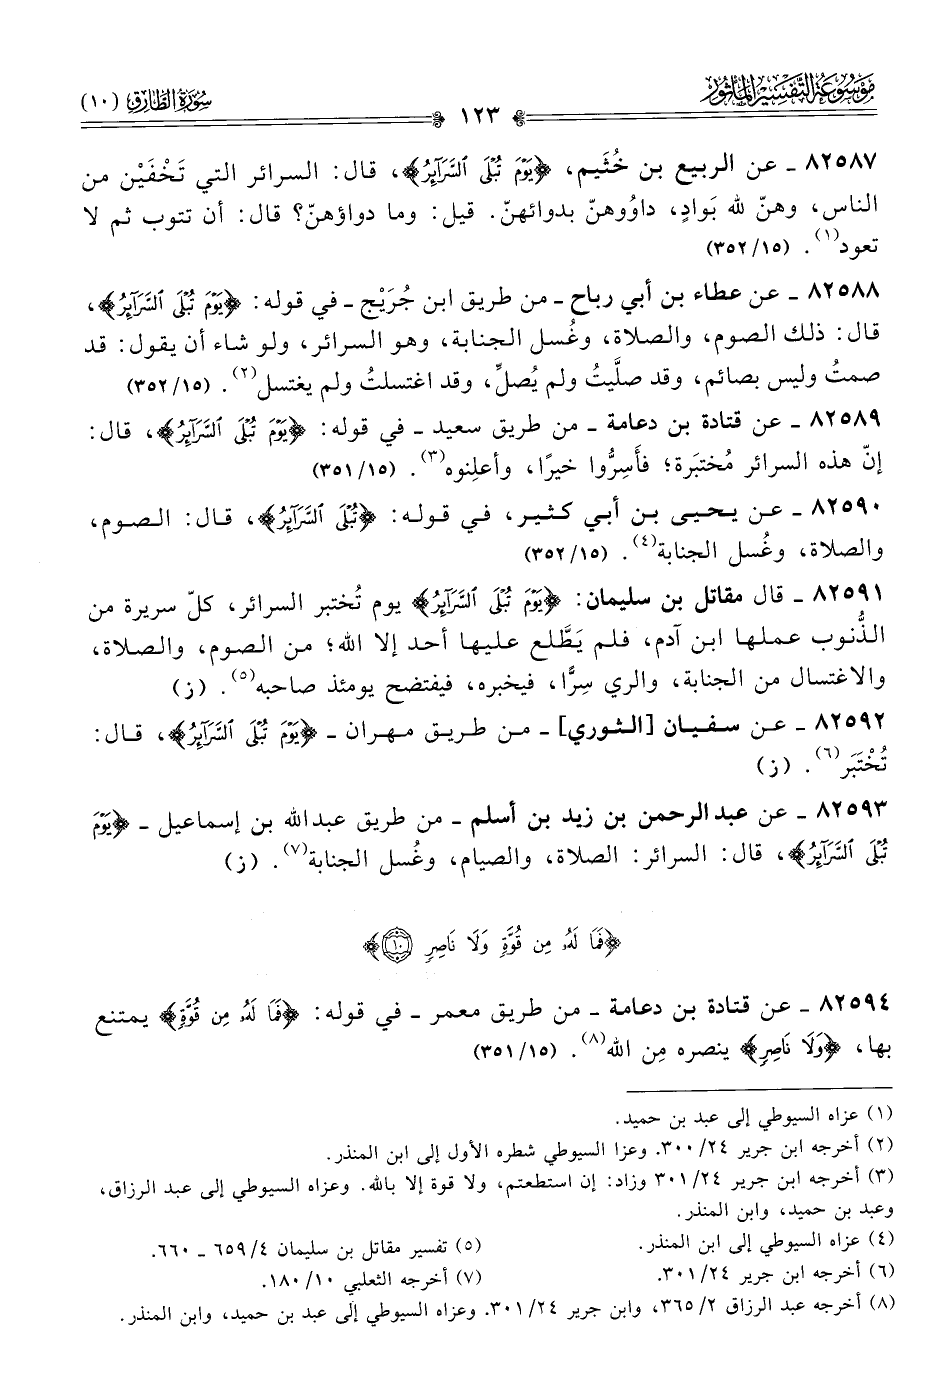 موسوعة التفسير المأثور
١٢٣
سورة الطارق (١٠)
٨٢٥٨٧ ـ عن الربيع بن خُثَيم، ﴿يَوْمَ تُبْلَى ٱلسَّرَآئِرُ﴾، قال: السرائر التي تَخْفَيْن من
الناس، وهنّ لله بَوادٍ، داوُوهنّ بدوائهنّ. قيل: وما دواؤهنّ؟ قال: أن تتوب ثم لا
تعود(١). (١٥/٣٥٢)
٨٢٥٨٨ ـ عن عطاء بن أبي رباح ـ من طريق ابن جُرَيْج ـ في قوله: ﴿يَوْمَ تُبْلَى ٱلسَّرَآئِرُ﴾،
قال: ذلك الصوم، والصلاة، وغُسل الجنابة، وهو السرائر، ولو شاء أن يقول: قد
صمتُ وليس بصائم، وقد صلَّيتُ ولم يُصلِّ، وقد اغتسلتُ ولم يغتسل(٢). (١٥/٣٥٢)
٨٢٥٨٩ ـ عن قتادة بن دعامة ـ من طريق سعيد ـ في قوله: ﴿يَوْمَ تُبْلَى ٱلسَّرَآئِرُ﴾، قال:
إنّ هذه السرائر مُختبَرة؛ فأَسِرُّوا خيرًا، وأعلِنوه(٣). (١٥/٣٥١)
٨٢٥٩٠ ـ عن يحيى بن أبي كثير، في قوله: ﴿تُبْلَى ٱلسَّرَآئِرُ﴾، قال: الصوم،
والصلاة، وغُسل الجنابة(٤). (١٥/٣٥٢)
٨٢٥٩١ ـ قال مقاتل بن سليمان: ﴿يَوْمَ تُبْلَى ٱلسَّرَآئِرُ﴾ يوم تُختبر السرائر، كلّ سريرة من
الذُّنوب عملها ابن آدم، فلم يَطَّلع عليها أحد إلا الله؛ من الصوم، والصلاة،
والاغتسال من الجنابة، والري سِرًّا، فيخبره، فيفتضح يومئذ صاحبه(٥). (ز)
٨٢٥٩٢ ـ عن سفيان [الثوري] ـ من طريق مهران ـ ﴿يَوْمَ تُبْلَى ٱلسَّرَآئِرُ﴾، قال:
تُخْتَبَر(٦). (ز)
٨٢٥٩٣ ـ عن عبدالرحمن بن زيد بن أسلم ـ من طريق عبدالله بن إسماعيل ـ ﴿يَوْمَ
تُبْلَى ٱلسَّرَآئِرُ﴾، قال: السرائر: الصلاة، والصيام، وغُسل الجنابة(٧). (ز)
﴿فَمَا لَهُۥ مِن قُوَّةٍ وَلَا نَاصِرٍ ١٠﴾
٨٢٥٩٤ ـ عن قتادة بن دعامة ـ من طريق معمر ـ في قوله: ﴿فَمَا لَهُۥ مِن قُوَّةٍ﴾ يمتنع
بها، ﴿وَلَا نَاصِرٍ﴾ ينصره مِن الله(٨). (١٥/٣٥١)
(١) عزاه السيوطي إلى عبد بن حميد.
(٢) أخرجه ابن جرير ٢٤/٣٠٠. وعزا السيوطي شطره الأول إلى ابن المنذر.
(٣) أخرجه ابن جرير ٢٤/٣٠١ وزاد: إن استطعتم، ولا قوة إلا بالله. وعزاه السيوطي إلى عبد الرزاق،
وعبد بن حميد، وابن المنذر.
(٤) عزاه السيوطي إلى ابن المنذر.
(٥) تفسير مقاتل بن سليمان ٤/٦٥٩ ـ ٦٦٠.
(٦) أخرجه ابن جرير ٢٤/٣٠١.
(٧) أخرجه الثعلبي ١٠/١٨٠.
(٨) أخرجه عبد الرزاق ٢/٣٦٥، وابن جرير ٢٤/٣٠١. وعزاه السيوطي إلى عبد بن حميد، وابن المنذر.